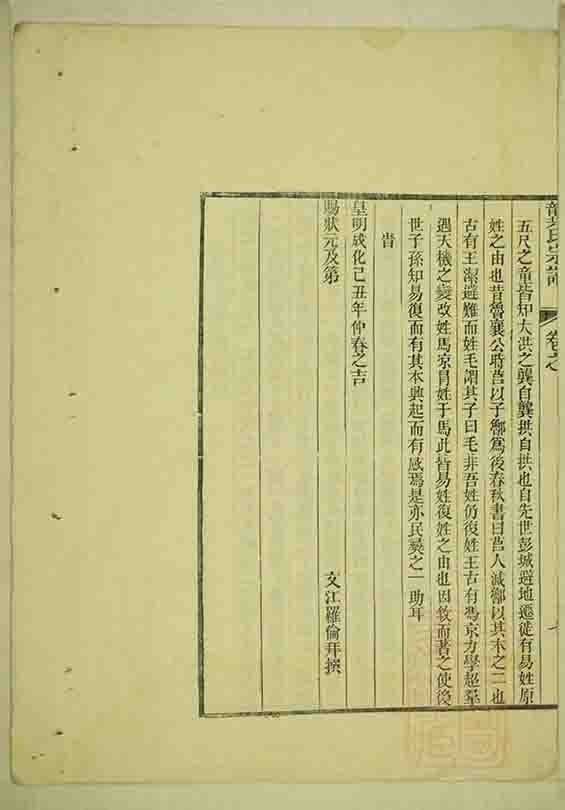 氏宗譜
卷之
五尺之童皆知大洪之龔自龔拱自拱也自先世彭城避地遷徙有易姓原
姓之由也昔魯襄公時莒以子鄫為後春秋書曰莒人滅鄫以其本之二也
古有王潔避難而姓毛謂其子曰毛非吾姓仍復姓王古有馮京力學超羣
遇天機之變改姓馬京冐姓于馬此皆易姓復姓之由也因敘而著之使後
世子孫知易復而有其本興起而有感焉是亦民彞之一助耳
旹
皇明成化己丑年仲春之吉
賜狀元及第
文江羅倫拜撰